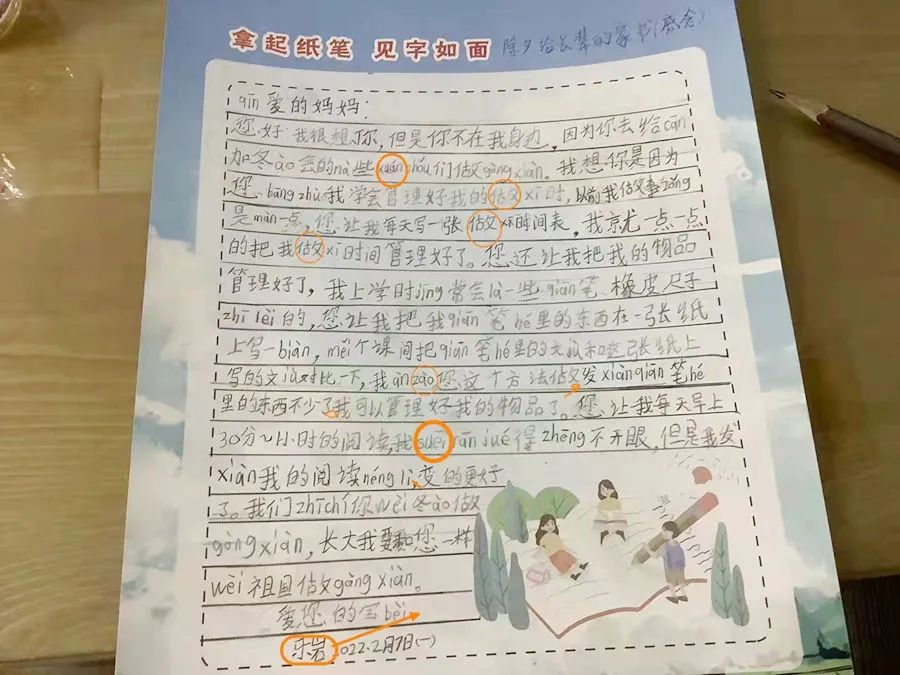 拿起纸笔 见字如面
除夕给长辈的家书(感念)
qīn爱的妈妈:
您好:我很想你,但是你不在我身边,因为你去给cān
加冬ào会的nà些xuán shǒu们做gòng xiàn。我想你是因为
您bāng zhù我学会管理好我的做xī时,以前我做事zǒng
是màn一点,您让我每天写一张做xī时间表,我京尤一点一点
的把我做xī时间管理好了。您还让我把我的物品
管理好了,我上学时jīng常会là一些qiān笔、橡皮、尺子
zhī lèi的,您让我把我qiān笔hé里的东西在一张纸
上写一biàn,měi个课间把qiān笔hé里的文jù和这张纸上
写的文jù对比一下,我àn zào您这个方法做发xiàn qiān笔hé
里的东西不少了我可以管理好我的物品了。您让我每天早上
30分~1小时的阅读,我suī rán jué得zhēng不开眼,但是我发
xiàn我的阅读néng lì,变的更好
了。我们zhī chí你wèi冬ào做
gòng xiàn,长大我要和您一样
wèi祖国做gòng xiàn。
爱您的宝bèi
乐岩 2022.2月7日(一)